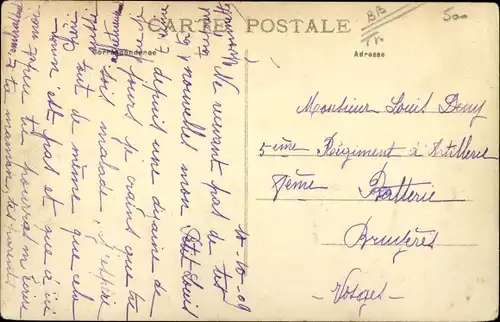 CARTE POSTALE
Correspondance
Adresse
BB
500
Monsieur Louis Deny
5ème Régiment d'Artillerie
8ème Batterie
Bruyères
- Vosges -
10-10-09
Ne recevant pas de tes
nouvelles mon Petit Louis
depuis une dizaine de
jours je crains que tu
sois malade, j'espère
tout de même que cela
n'est pas et que à
tu pourras m'écrire
ta maman, tes parents